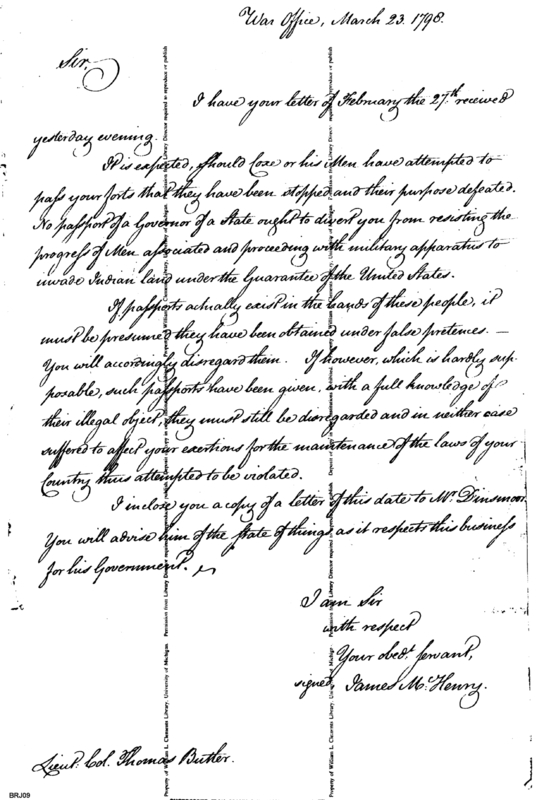 War Office, March 23. 1798.
Sir,
I have your letter of February the 27th received
yesterday evening.
It is expected, should Coxe or his Men have attempted to
pass your forts that they have been stopped and their purpose defeated.
No passport of a Governor of a State ought to divert you from resisting the
progress of Men associated and proceeding with military apparatus to
invade Indian land under the Guarantee of the United States.
If passports actually exist in the hands of these people, it
must be presumed they have been obtained under false pretences. —
You will accordingly disregard them. If however, which is hardly sup-
posable, such passports have been given, with a full knowledge of
their illegal object, they must still be disregarded and in neither case
suffered to affect your exertions for the maintenance of the laws of your
Country thus attempted to be violated.
I inclose you a copy of a letter of this date to Mr. Dinsmoor.
You will advise him of the state of things, as it respects this business
for his Government.
I am Sir
with respect
Your obedt. servant,
signed, James McHenry.
Lieut. Col. Thomas Butler.
Property of William L. Clements Library, University of Michigan. Permission from Library Director required to reproduce or publish
Property of William L. Clements Library, University of Michigan. Permission from Library Director required to reproduce or publish
BRJ09